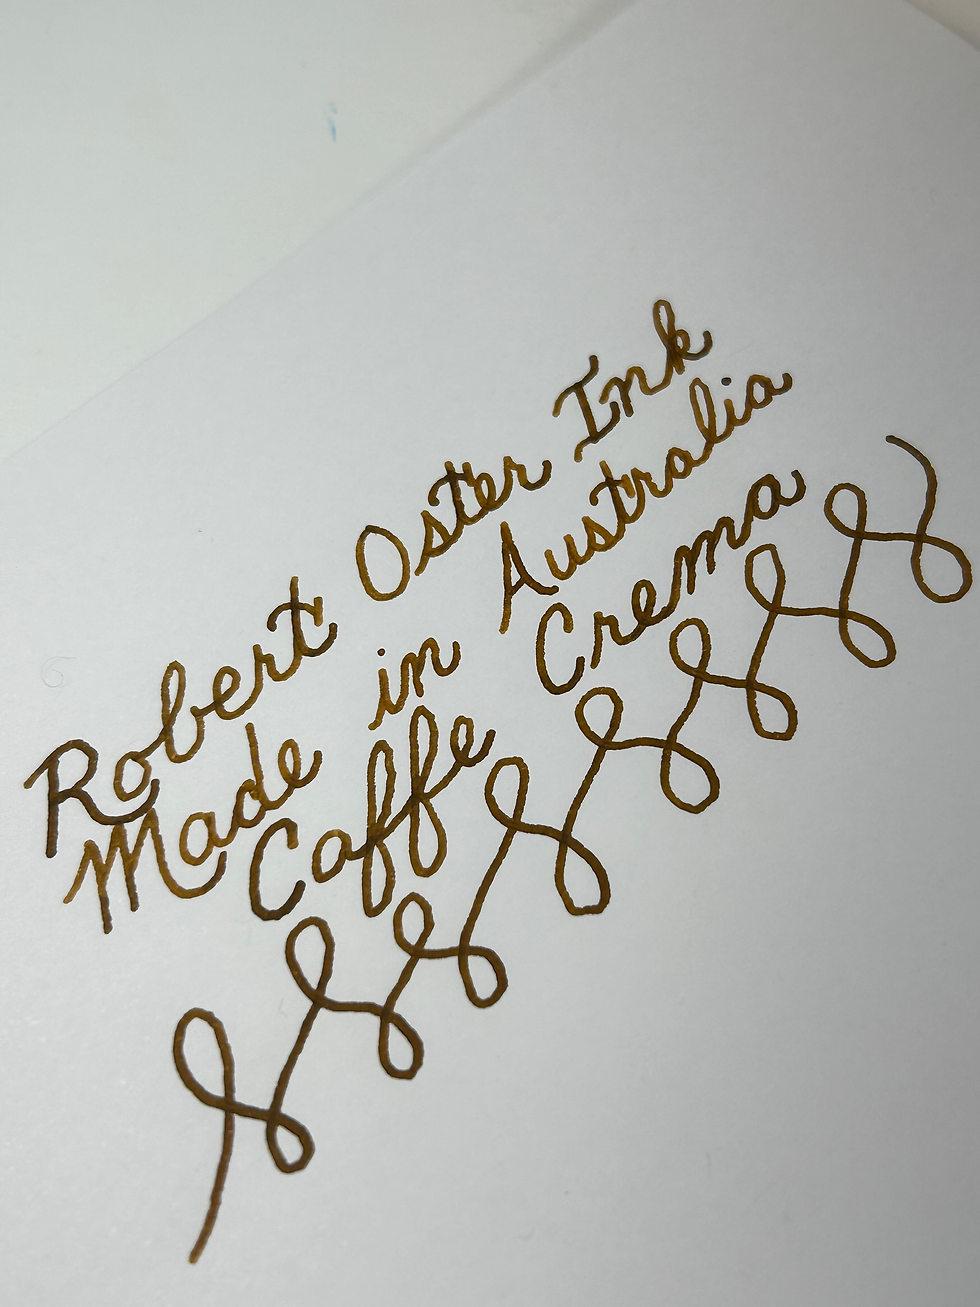 Robert Oster Ink
Made in Australia
Caffe Crema